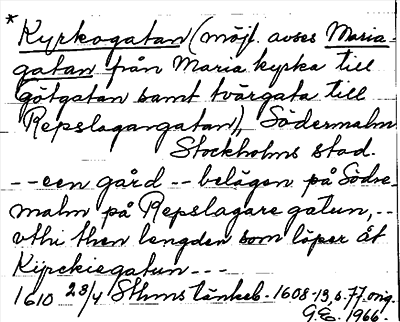 * Kyrkogatan (möjl. avses Maria-
gatan från Maria kyrka till
Götgatan samt tvärgata till
Repslagargatan), Södermalm
Stockholms stad.
-- een gård -- belägen på Södre-
malm på Repslagare gatun, --
vthi then lengden som löper åt
Kijrckiegatun ---
1610 28/4 Sthms tänkeb. 1608-13, s. 77 orig.
G.E. 1966.